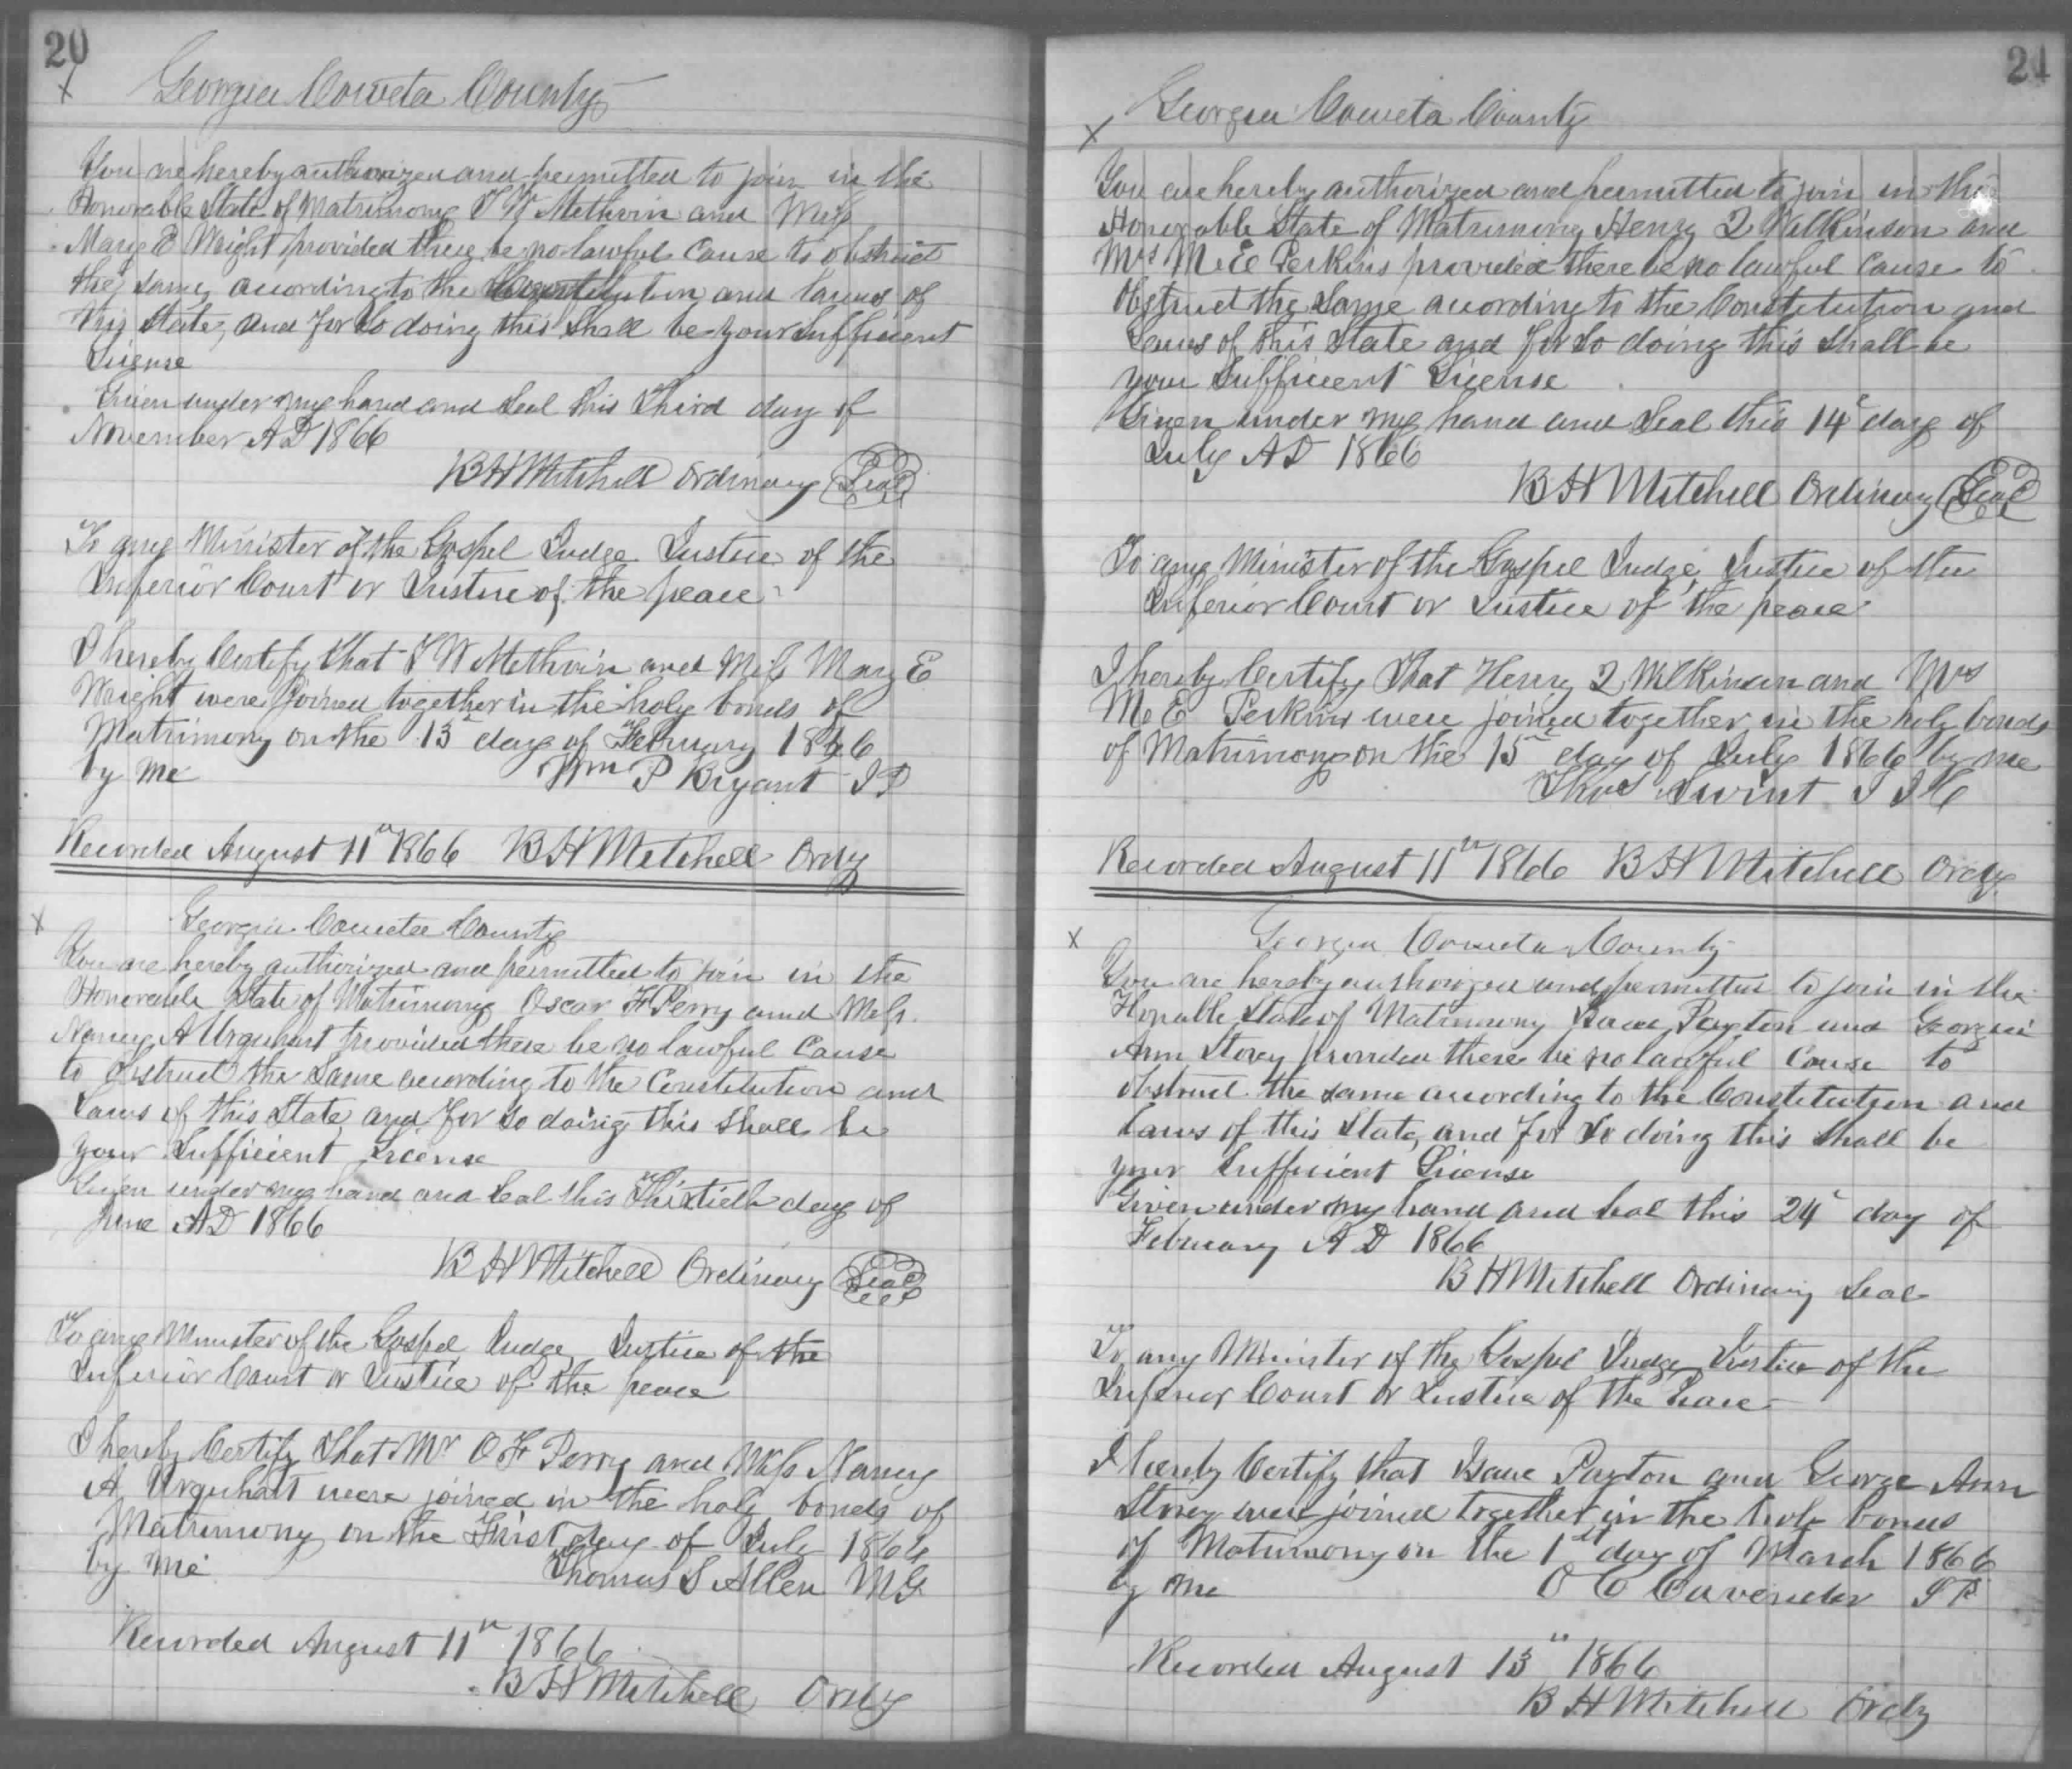 20
X Georgia Coweta County
You are hereby authorized and permitted to join in the
Honorable State of Matrimony T W Methvin and Miss
Mary E Wright provided there be no lawful cause to obstruct
the same, according to the Constitution and laws of
this State, and for so doing this shall be your sufficient
License
Given under my hand and seal this Third day of
November AD 1866
B H Mitchell Ordinary Seal
To any Minister of the Gospel Judge Justice of the
Inferior Court or Justice of the peace
I hereby Certify that T W Methvin and Miss Mary E
Wright were joined together in the holy bonds of
Matrimony on the 13th day of February 1866
by me Wm P Bryant J P
Recorded August 11th 1866 B H Mitchell Ordy
X Georgia Coweta County
You are hereby authorized and permitted to join in the
Honorable State of Matrimony Oscar F Perry and Miss
Nancy A Urquhart provided there be no lawful cause
to obstruct the same according to the Constitution and
Laws of this State and for so doing this shall be
your Sufficient License
Given under my hand and seal this Thirtieth day of
June AD 1866
B H Mitchell Ordinary Seal
To any Minister of the Gospel Judge, Justice of the
Inferior Court or Justice of the peace
I hereby Certify That Mr O F Perry and Miss Nancy
A. Urquhart were joined in the holy bonds of
Matrimony on the First day of July 1866
by me Thomas S Allen M G
Recorded August 11th 1866
B H Mitchell Ordy
21
X Georgia Coweta County
You are hereby authorized and permitted to join in the
Honorable State of Matrimony Henry Q Wilkinson and
Mrs M E Perkins provided there be no lawful cause to
obstruct the same according to the Constitution and
Laws of this State and for so doing this shall be
your Sufficient License
Given under my hand and seal this 14th day of
July AD 1866
B H Mitchell Ordinary Seal
To any Minister of the Gospel Judge, Justice of the
Inferior Court or Justice of the peace
I hereby Certify That Henry Q Wilkinson and Mrs
M E Perkins were joined together in the holy bonds
of Matrimony on the 15th day of July 1866 by me
Thos Swint J I C
Recorded August 11th 1866 B H Mitchell Ordy
X Georgia Coweta County
You are hereby authorized and permitted to join in the
Honable State of Matrimony Isaac Payton and Georgia
Ann Storey provided there be no lawful cause to
obstruct the same according to the Constitution and
Laws of this State, and for so doing this shall be
your Sufficient License
Given under my hand and seal this 24th day of
February A D 1866
B H Mitchell Ordinary Seal
To any Minister of the Gospel Judge Justice of the
Inferior Court or Justice of the Peace
I hereby Certify that Isaac Payton and George Ann
Storey were joined together in the holy bonds
of Matrimony on the 1st day of March 1866
by me O C Cavender J P
Recorded August 13th 1866
B H Mitchell Ordy